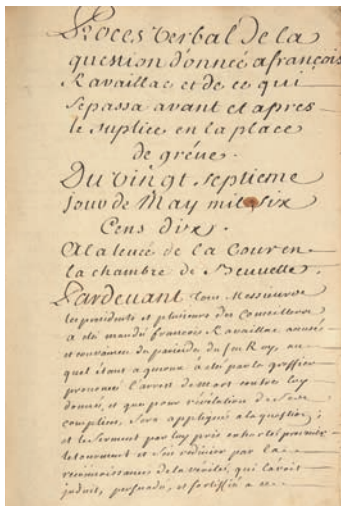 Proces verbal de la
question donnée a françois
Ravaillac et de ce qui
se passa avant et apres
le suplice en la place
de gréve.
Du vingt septieme
jour de May mil six
Cens dix.
A la levée de la Cour en
la chambre de Beuvelle.
Pardevant tous Messieurs
les presidents et plusieurs des Conseillers
a été mandé francois Ravaillac accusé
et convaincu du paricide du feu Roy, au
quel étant a genoux a été par le greffier
prononcé l'arrest de mort contre luy
donné, et que pour révélation de ses
complices, sera appliqué a la question;
et le serment par luy pris exhorté prevenir
le tourment et s'en redimer par la
reconnoissance de la vérité, qui l'avoit
induit, persuadé, et fortiffié a ce